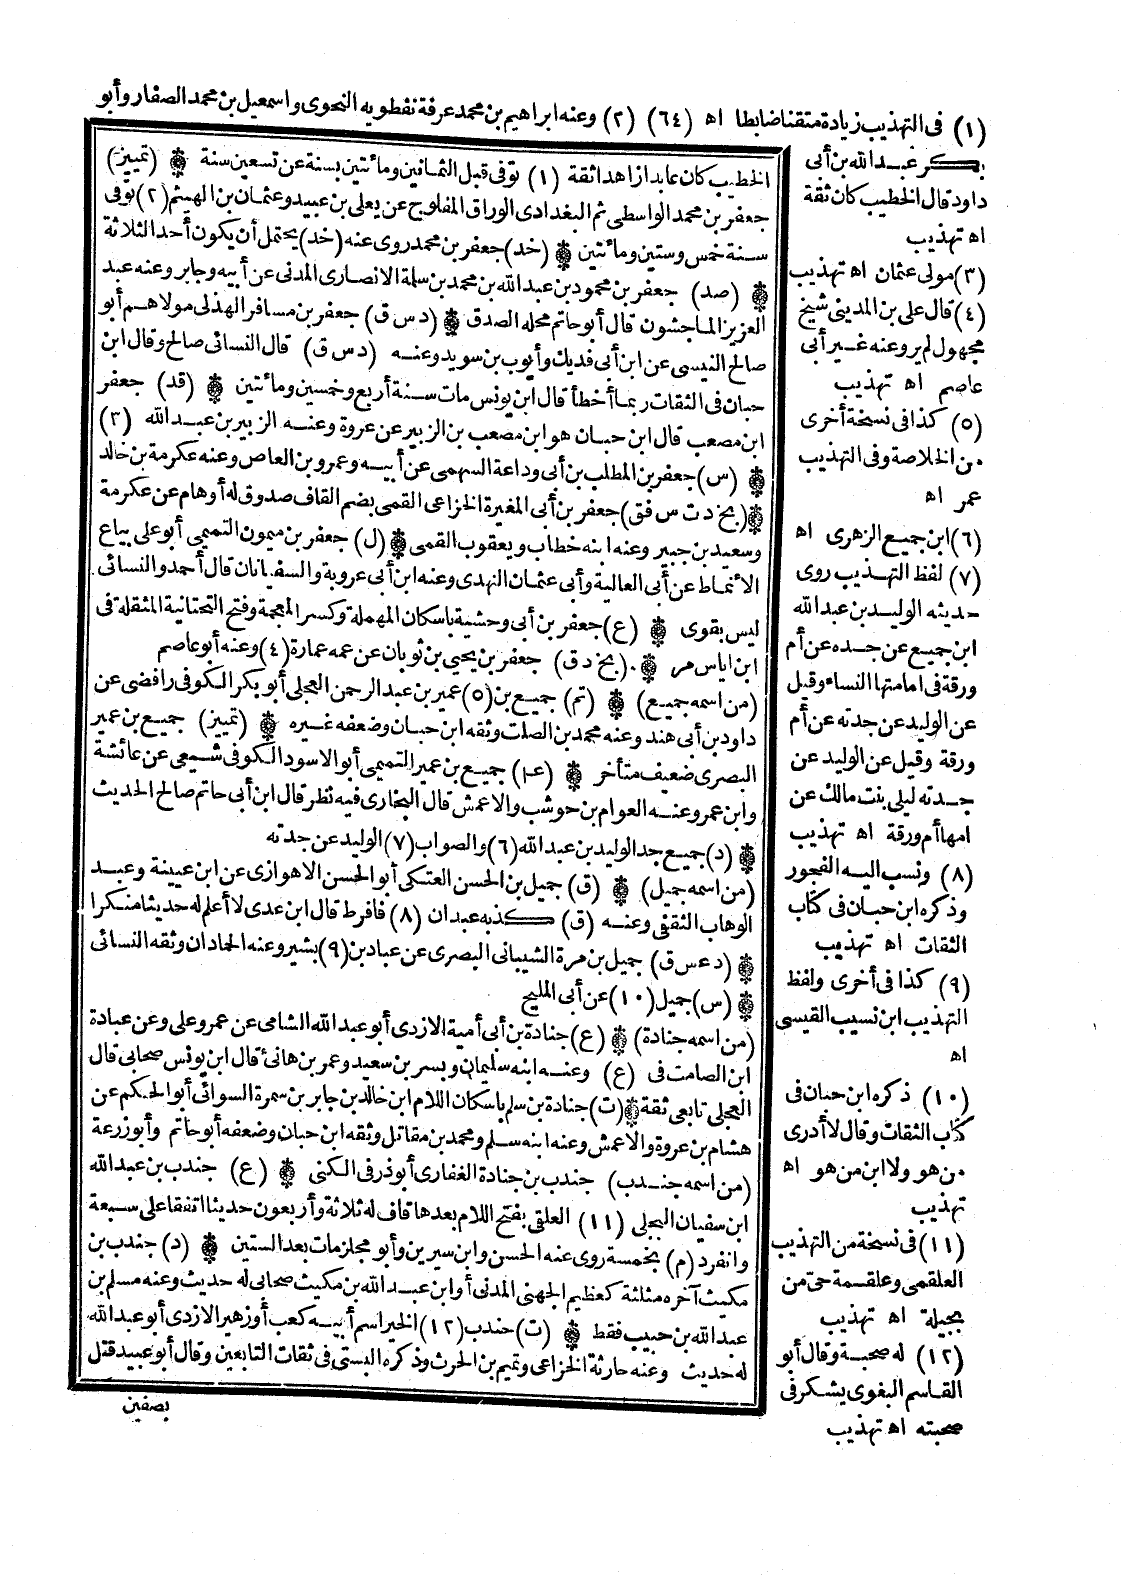 (١) فى التهذيب زيادة متقنا ضابطا اه (٦٤) (٢) وعنه ابراهيم بن محمد عرفة نفطويه النحوى واسمعيل بن محمد الصفار وأبو
بكر عبد الله بن أبى
داود قال الخطيب كان ثقة
اه تهذيب
(٣) مولى عثمان اه تهذيب
(٤) قال على بن المدينى شيخ
مجهول لم يرو عنه غير أبى
عاصم اه تهذيب
(٥) كذا فى نسخة أخرى
من الخلاصة وفى التهذيب
عمر اه
(٦) ابن جميع الزهرى اه
(٧) لفظ التهذيب روى
حديثه الوليد بن عبد الله
ابن جميع عن جده عن أم
ورقة فى امامتها النساء وقيل
عن الوليد عن جدته عن أم
ورقة وقيل عن الوليد عن
جدته ليلى بنت مالك عن
امها أم ورقة اه تهذيب
(٨) ونسب اليه الفجور
وذكره ابن حبان فى كتاب
الثقات اه تهذيب
(٩) كذا فى أخرى ولفظ
التهذيب ابن نسيب القيسى
اه
(١٠) ذكره ابن حبان فى
كتاب الثقات وقال لا أدرى
من هو ولا ابن من هو اه
تهذيب
(١١) فى نسخة من التهذيب
العلقمى وعلقمة حى من
بجيلة اه تهذيب
(١٢) له صحبة وقال أبو
القاسم البغوى يشكر فى
صحبته اه تهذيب
الخطيب كان عابدا زاهدا ثقة (١) توفى قبل الثمانين ومائتين بسنة عن تسعين سنة ۞ (تمييز)
جعفر بن محمد الواسطى ثم البغدادى الوراق المفلوج عن يعلى بن عبيد وعثمان بن الهيثم (٢) توفى
سنة خمس وستين ومائتين ۞ (خد) جعفر بن محمد روى عنه (خد) يحتمل أن يكون أحد الثلاثة
۞ (صد) جعفر بن محمود بن عبد الله بن محمد بن سلمة الانصارى المدنى عن أبيه وجابر وعنه عبد
العزيز الماجشون قال أبو حاتم محله الصدق ۞ (د س ق) جعفر بن مسافر الهذلى مولاهم أبو
صالح التنيسى عن ابن أبى فديك وأيوب بن سويد وعنه (د س ق) قال النسائى صالح وقال ابن
حبان فى الثقات ربما أخطأ قال ابن يونس مات سنة أربع وخمسين ومائتين ۞ (قد) جعفر
ابن مصعب قال ابن حبان هو ابن مصعب بن الزبير عن عروة وعنه الزبير بن عبد الله (٣)
۞ (س) جعفر بن المطلب بن أبى وداعة السهمى عن أبيه وعمرو بن العاص وعنه عكرمة بن خالد
۞ (بخ د ت س فق) جعفر بن أبى المغيرة الخزاعى القمى بضم القاف صدوق له أوهام عن عكرمة
وسعيد بن جبير وعنه ابنه خطاب ويعقوب القمى ۞ (ل) جعفر بن ميمون التميمى أبو على بياع
الأنماط عن أبى العالية وأبى عثمان النهدى وعنه ابن أبى عروبة والسفيانان قال أحمد والنسائى
ليس بقوى ۞ (ع) جعفر بن أبى وحشية باسكان المهملة وكسر المعجمة وفتح التحتانية المثقلة فى
ابن اياس مر ۞ (بخ د ق) جعفر بن يحيى بن ثوبان عن عمه عمارة (٤) وعنه أبو عاصم
(من اسمه جميع) ۞ (تم) جميع بن (٥) عمير بن عبد الرحمن العجلى أبو بكر الكوفى رافضى عن
داود بن أبى هند وعنه محمد بن الصلت وثقه ابن حبان وضعفه غيره ۞ (تمييز) جميع بن عمير
البصرى ضعيف متأخر ۞ (عا) جميع بن عمير التميمى أبو الاسود الكوفى شيعى عن عائشة
وابن عمر وعنه العوام بن حوشب والاعمش قال البخارى فيه نظر قال ابن أبى حاتم صالح الحديث
۞ (د) جميع جد الوليد بن عبد الله (٦) والصواب (٧) الوليد عن جدته
(من اسمه جميل) ۞ (ق) جميل بن الحسن العتكى أبو الحسن الاهوازى عن ابن عيينة وعبد
الوهاب الثقفى وعنه (ق) كذبه عبدان (٨) فافرط قال ابن عدى لا أعلم له حديثا منكرا
۞ (د عس ق) جميل بن مرة الشيبانى البصرى عن عباد بن (٩) بشير وعنه الحمادان وثقه النسائى
۞ (س) جميل (١٠) عن أبى المليح
(من اسمه جنادة) ۞ (ع) جنادة بن أبى أمية الازدى أبو عبد الله الشامى عن عمر وعلى وعن عبادة
ابن الصامت فى (ع) وعنه ابنه سليمان وبسر بن سعيد وعمر بن هانئ قال ابن يونس صحابى قال
العجلى تابعى ثقة ۞ (ت) جنادة بن سلم باسكان اللام ابن خالد بن جابر بن سمرة السوائى أبو الحكم عن
هشام بن عروة والاعمش وعنه ابنه سلم ومحمد بن مقاتل وثقه ابن حبان وضعفه أبو حاتم وأبو زرعة
(من اسمه جندب) جندب بن جنادة الغفارى أبو ذر فى الكنى ۞ (ع) جندب بن عبد الله
ابن سفيان البجلى (١١) العلقى بفتح اللام بعدها قاف له ثلاثة وأربعون حديثا اتفقا على سبعة
وانفرد (م) بخمسة روى عنه الحسن وابن سيرين وأبو مجلز مات بعد الستين ۞ (د) جندب بن
مكيث آخره مثلثة كعظيم الجهنى المدنى أو ابن عبد الله بن مكيث صحابى له حديث وعنه مسلم بن
عبد الله بن حبيب فقط ۞ (ت) جندب (١٢) الخير اسم أبيه كعب أو زهير الازدى أبو عبد الله
له حديث وعنه حارثة الخزاعى وتميم بن الحرث وذكره البستى فى ثقات التابعين وقال أبو عبيد قتل
بصفين